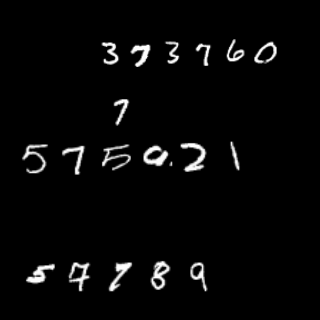 373760
7
575021
57789